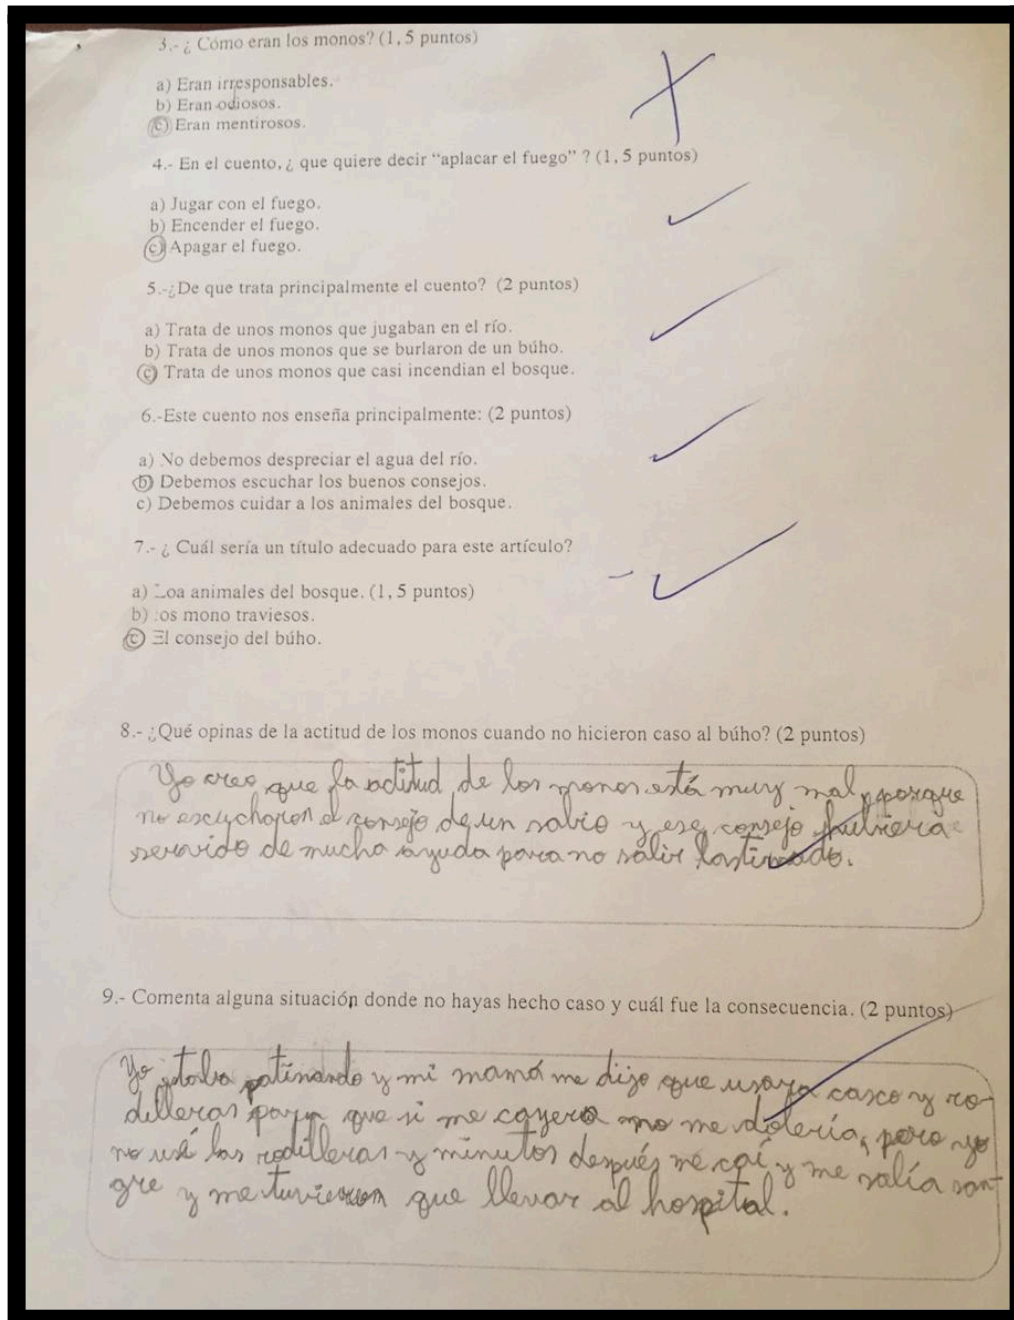 3.- ¿ Cómo eran los monos? (1,5 puntos)
a) Eran irresponsables.
b) Eran odiosos.
c) Eran mentirosos.
4.- En el cuento, ¿ que quiere decir “aplacar el fuego” ? (1, 5 puntos)
a) Jugar con el fuego.
b) Encender el fuego.
c) Apagar el fuego.
5.-¿De que trata principalmente el cuento? (2 puntos)
a) Trata de unos monos que jugaban en el río.
b) Trata de unos monos que se burlaron de un búho.
c) Trata de unos monos que casi incendian el bosque.
6.-Este cuento nos enseña principalmente: (2 puntos)
a) No debemos despreciar el agua del río.
b) Debemos escuchar los buenos consejos.
c) Debemos cuidar a los animales del bosque.
7.- ¿ Cuál sería un título adecuado para este artículo?
a) Loa animales del bosque. (1, 5 puntos)
b) os mono traviesos.
c) El consejo del búho.
8.- ¿Qué opinas de la actitud de los monos cuando no hicieron caso al búho? (2 puntos)
Yo creo que la actitud de los monos está muy mal, porque
no escucharon el consejo de un sabio y ese consejo hubiera
servido de mucha ayuda para no salir lastimado.
9.- Comenta alguna situación donde no hayas hecho caso y cuál fue la consecuencia. (2 puntos)
Yo estaba patinando y mi mamá me dijo que usara casco y ro-
dilleras para que si me cayera no me dolería, pero yo
no usé las rodilleras y minutos después me caí y me salía san-
gre y me tuvieron que llevar al hospital.